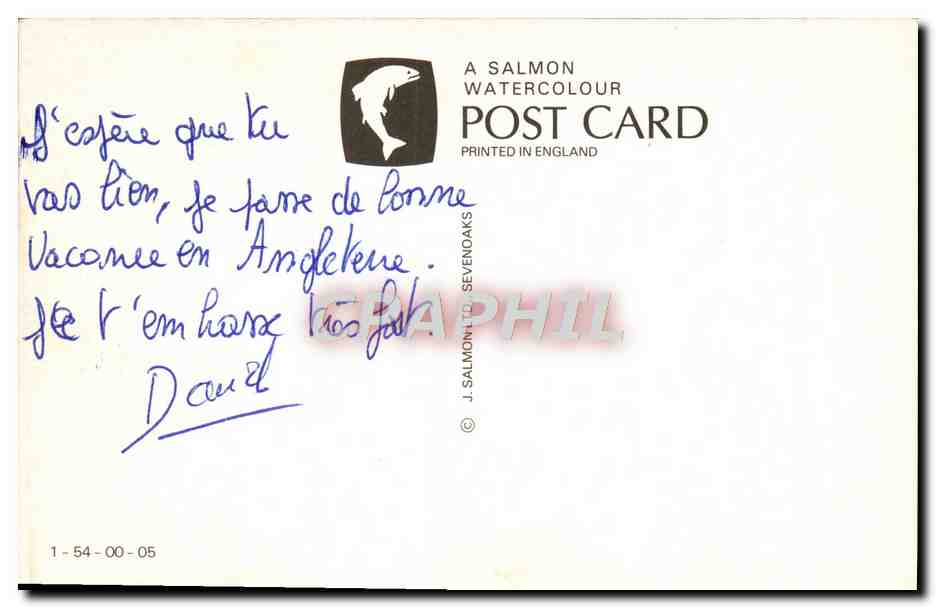 A SALMON
WATERCOLOUR
POST CARD
PRINTED IN ENGLAND
J'espère que tu
vas bien, je passe de bonne
vacance en Angleterre.
Je t'embrasse très fort
Daniel
© J. SALMON LTD., SEVENOAKS
CRAPHIL
1 - 54 - 00 - 05